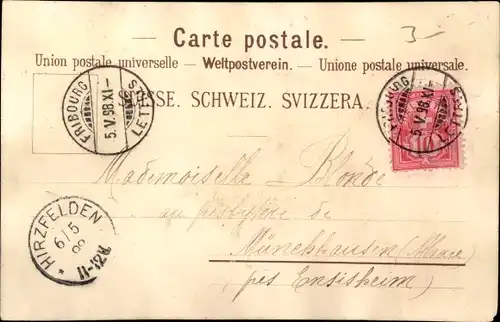 3-
Carte postale.
Union postale universelle. – Weltpostverein. – Unione postale universale.
SUISSE. SCHWEIZ. SVIZZERA.
FRIBOURG
5.V.98.XI–
LETT
FRIBOURG
5.V.98.XI–
LETT
10
Mademoiselle Blonde
au presbytère de
Münchhausen (Alsace)
près Ensisheim)
HIRZFELDEN
6/5
98
11-12V.